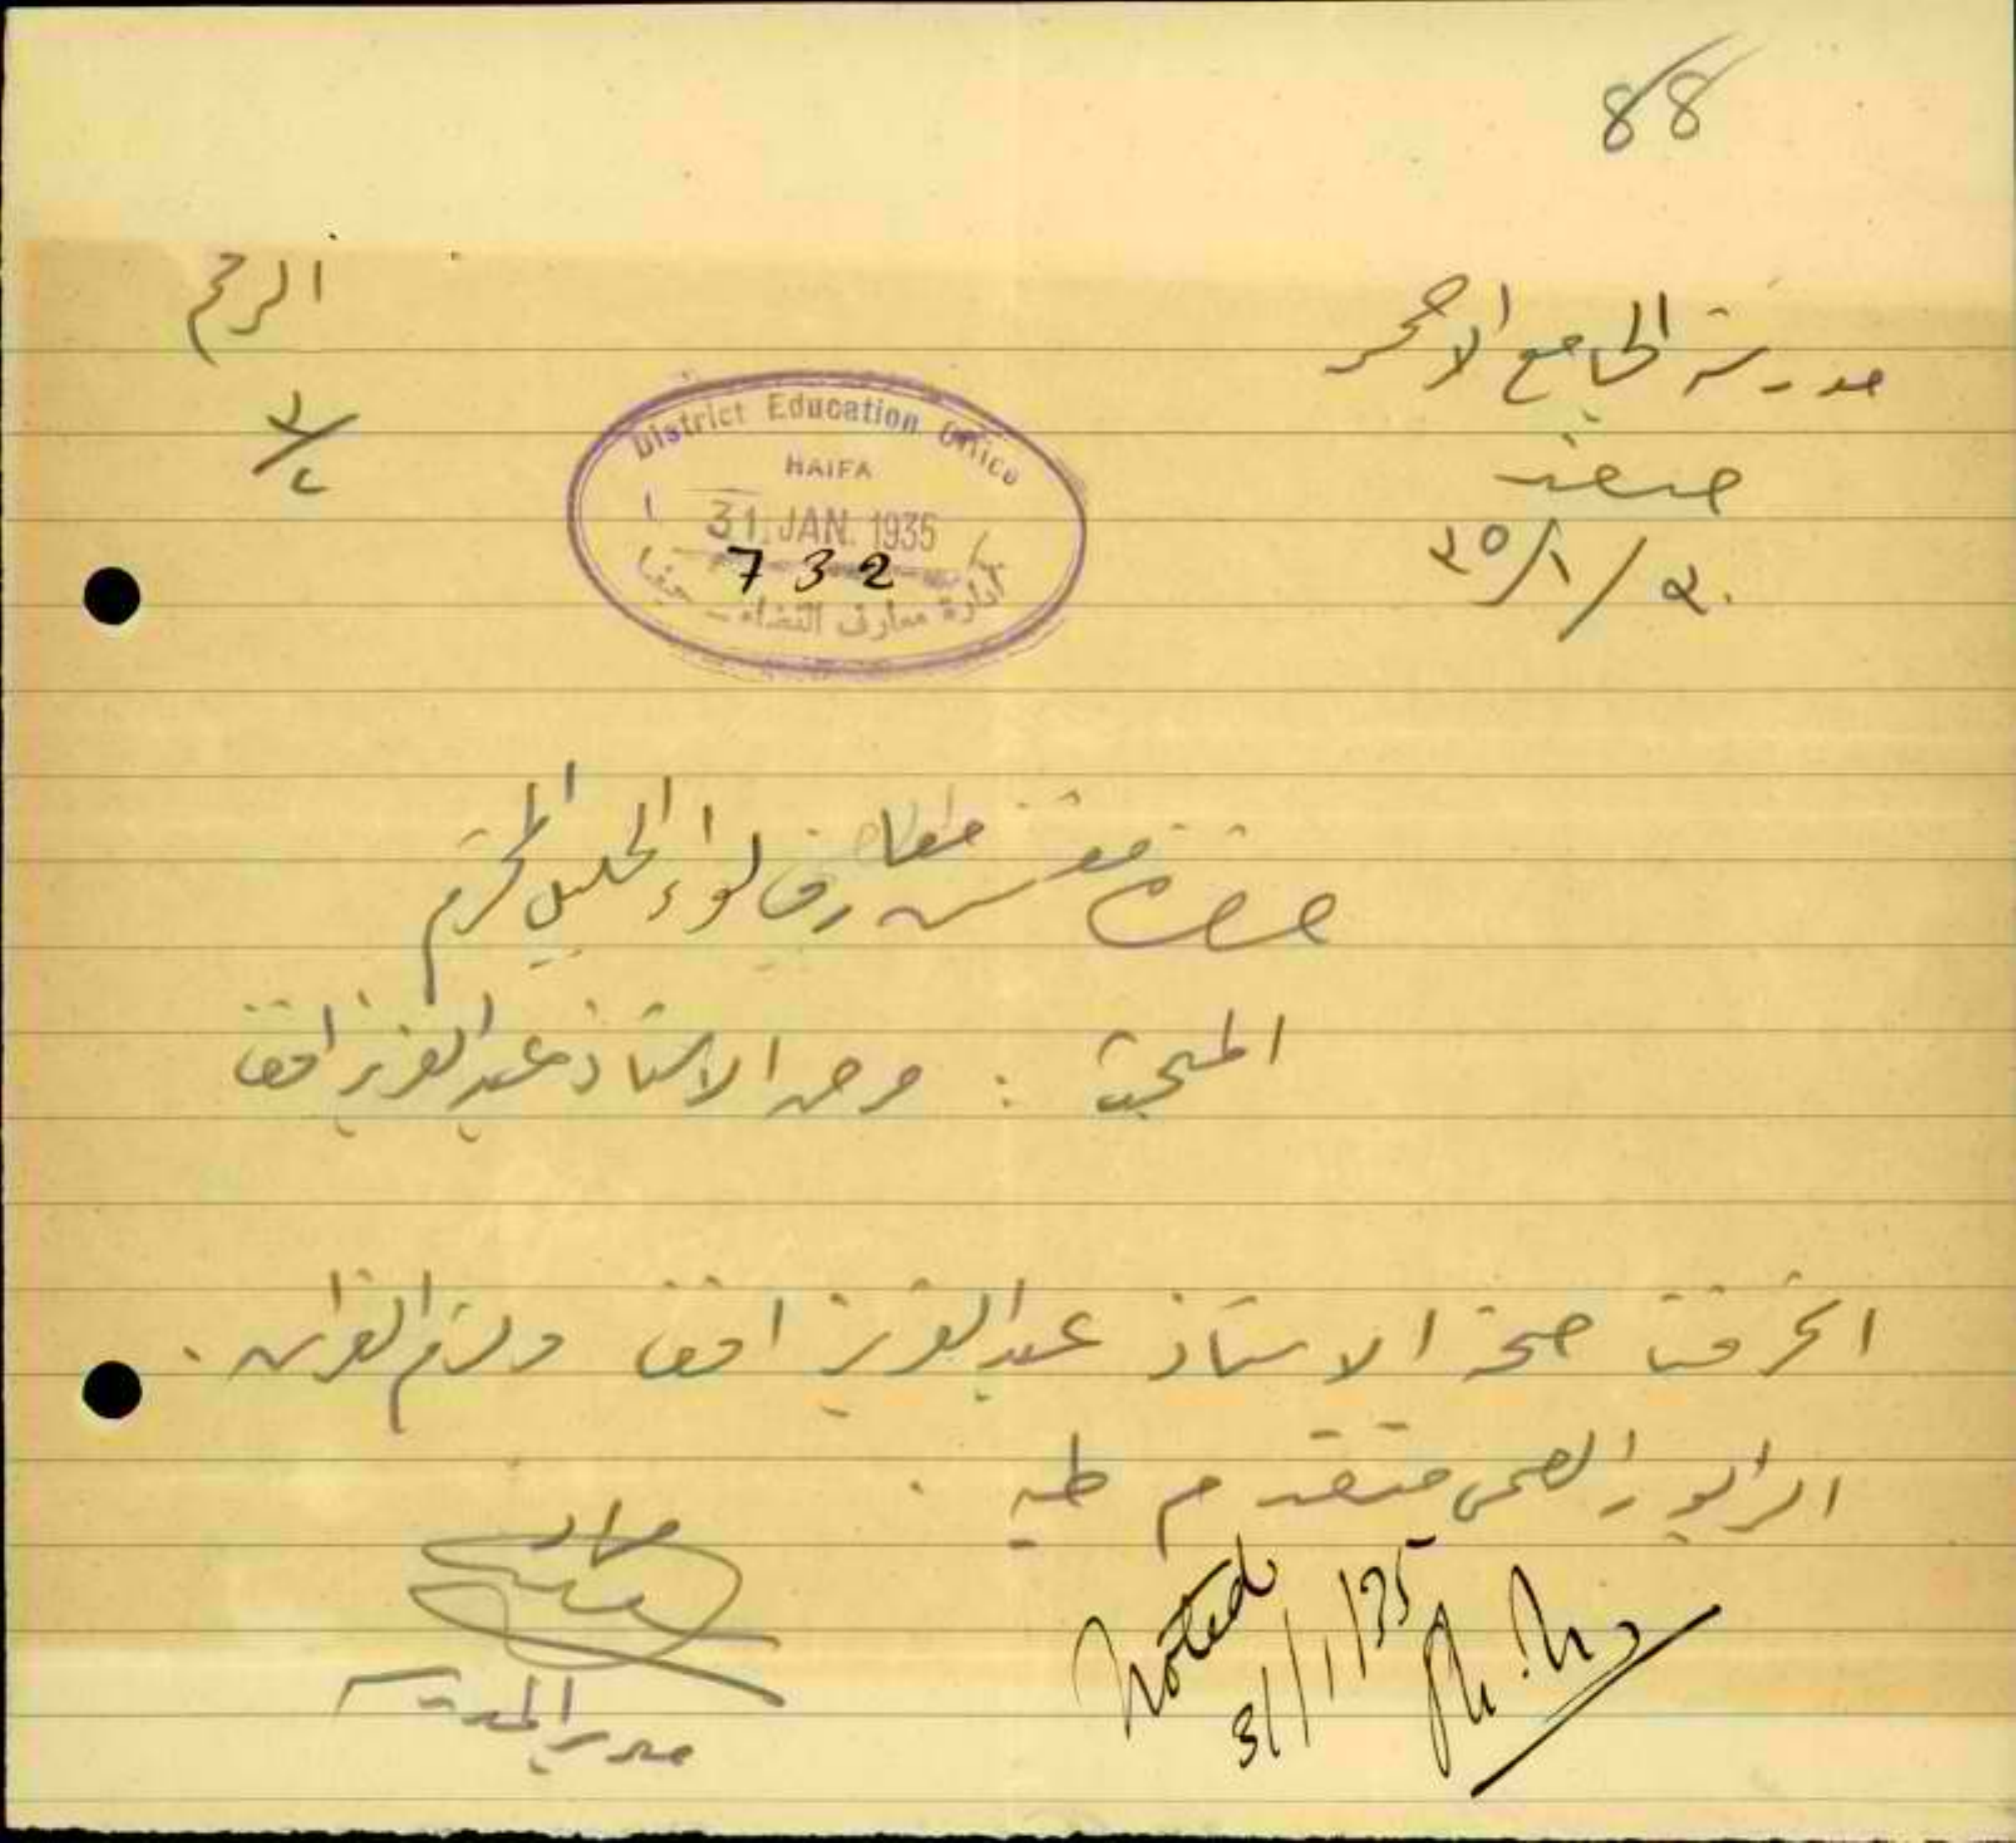 88
الرقم
مدرسة الجامع الاحمر
صفد
٣٠/١/٣٥
District Education Office
HAIFA
31 JAN. 1935
732
ادارة معارف القضاء - حيفا
حضرة مفتش معارف لواء الجليل المحترم
المبحث : مرض الاستاذ عبد العزيز افندي
انحرفت صحة الاستاذ عبد العزيز افندي ولزم الفراش .
الرابور الصحي متقدم طيه .
مدير المدرسة
Noted
31/1/35